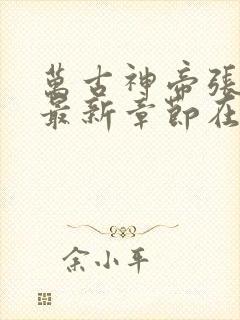 萬古神帝張
最新章節在
余小平